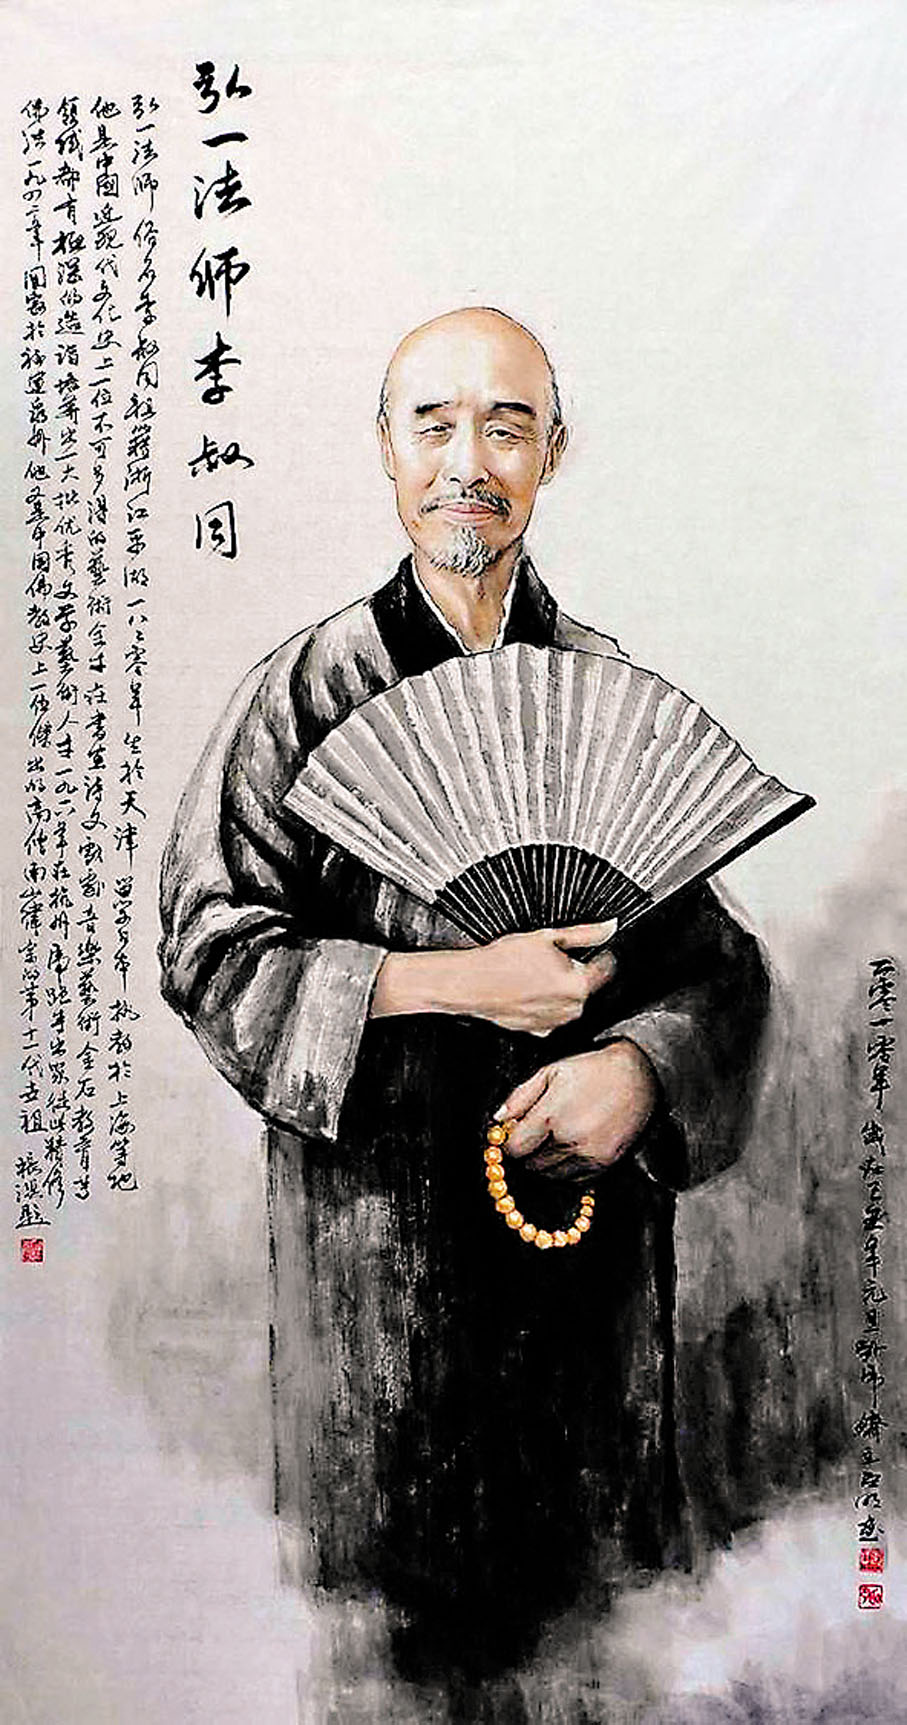 弘一法师李叔同
弘一法师俗名李叔同祖籍浙江平湖一八八零年生於天津 留学日本 执教於上海等地
他是中國近现代文化史上一位不可多得的藝術全才在書画诗文戲劇音樂藝術金石教育等
領域都有極深的造诣培养出一大批优秀文学藝術人才一九一八年在杭州虎跑寺出家從此精修
佛法一九四二年圆寂於福建泉州他是中国佛教史上一位傑出的高僧南山律宗的第十一代世祖 题
二零一零年 歲在己丑年元旦